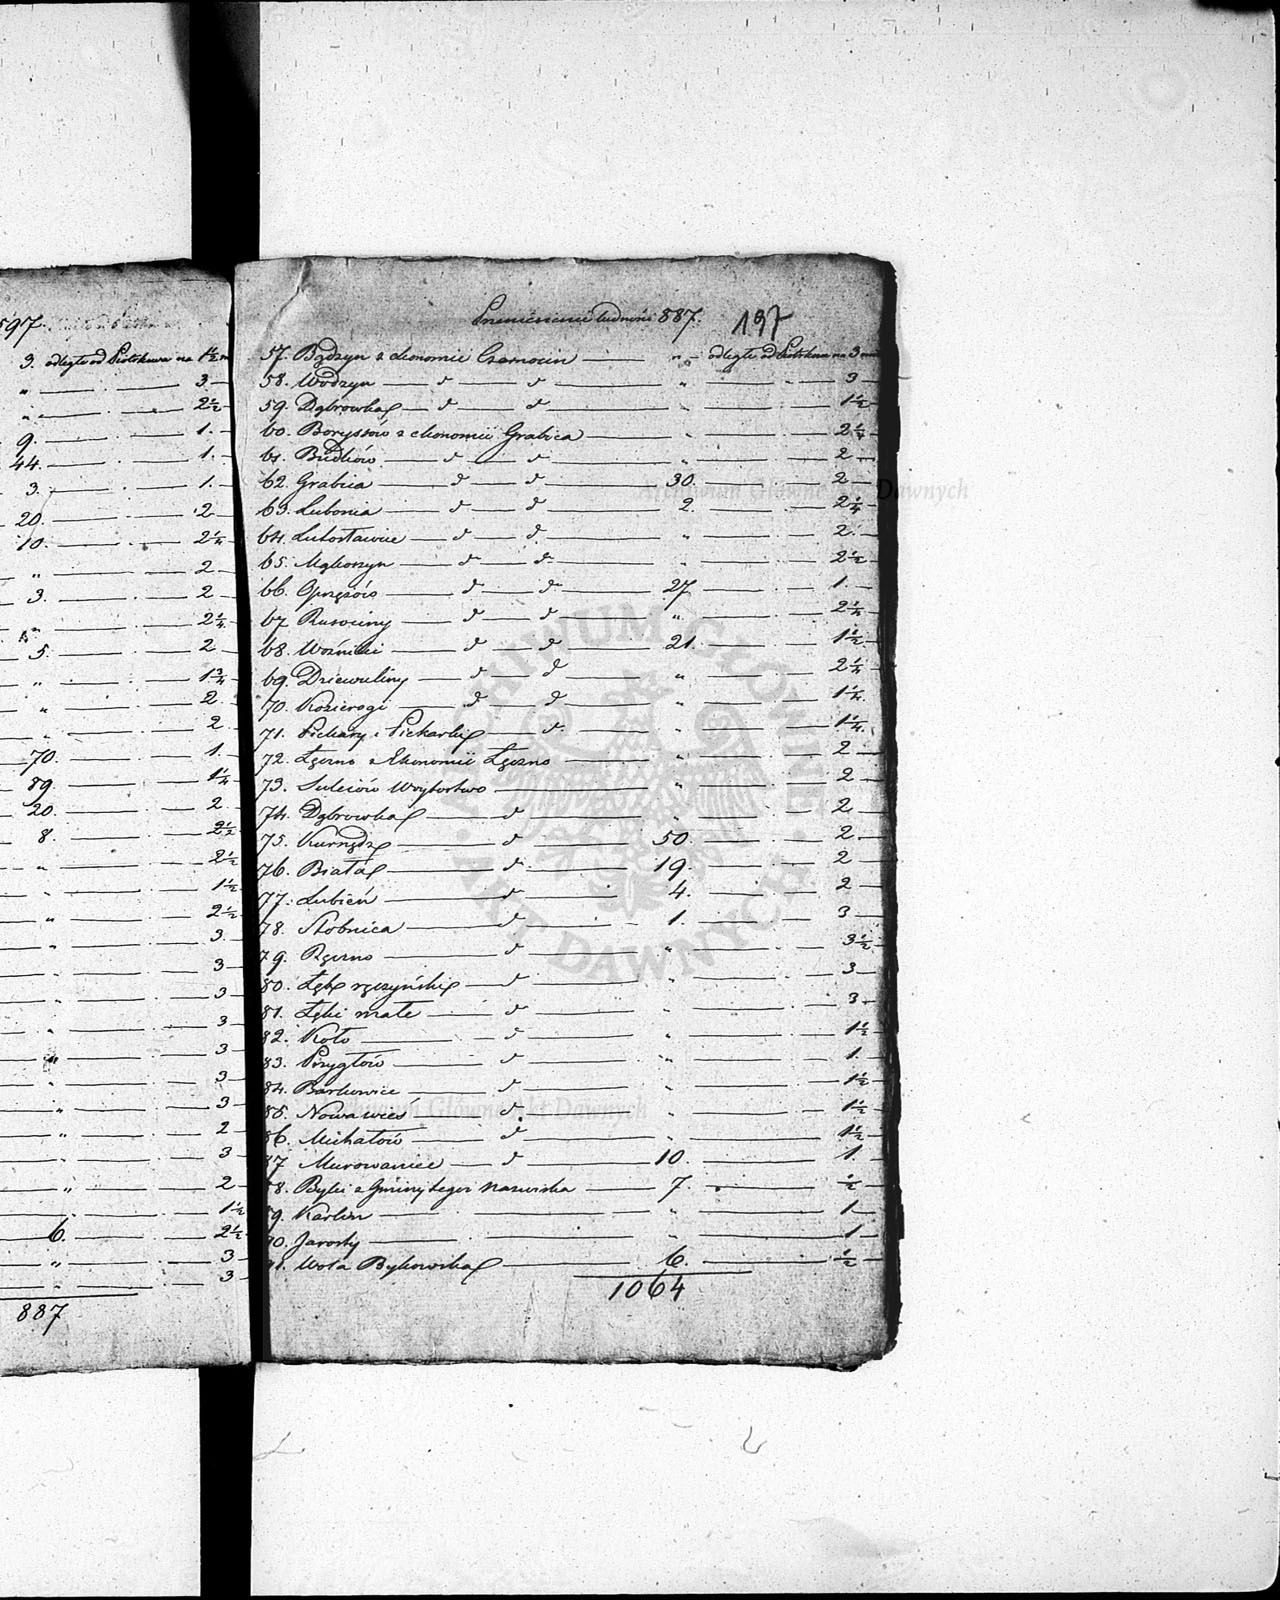 597.
3. odległe od Piotrkowa na 1½ m
" 3.
" 2½
9. 1.
44. 1.
3. 1.
20. 2
10. 2¼
" 2
3. 2
" 2¼
5. 2
" 1¾
" 2.
" 2.
70. 1.
89. 1¼
20. 2
8. 2½
" 2½
" 1½
" 2½
" 3.
" 3
" 3
" 3
" 3
" 3
" 3
" 2
" 3
" 2
" 1½
6. 2½
" 3
" 3
887
Przeniesienie ludności 887.
197
57. Będzyn z ekonomii Czarnocin " odległe od Piotrkowa na 3 mil
58. Wodzyn d d " 3
59. Dąbrowka d d " 1½
60. Boryszów z ekonomii Grabica " 2¼
61. Budków d d " 2
62. Grabica d d 30. 2
63. Lubonia d d 2. 2¼
64. Lutosławice d d " 2.
65. Mąkoszyn d d " 2½
66. Oprzężów d d 27 1.
67. Rusociny d d " 2¼
68. Woźniki d d 21. 1½
69. Dziewuliny d d " 2¼
70. Kozierogi d d " 1¼
71. Piekary i Piekarki d " 1¼
72. Łęczno z Ekonomii Łęczno " 2
73. Sulejów Woytostwo " 2
74. Dąbrowka d " 2
75. Kurnędz d 50. 2
76. Biała d 19. 2
77. Lubień d 4. 2
78. Stobnica d 1. 3
79. Ręczno d " 3½
80. Łęki ręczyńskie d " 3
81. Łęki małe d " 3
82. Koło d " 1½
83. Przygłów d " 1.
84. Barkowice d " 1½
85. Nowawieś d " 1½
86. Michałów d " 1½
87 Murowaniec d 10. 1.
88. Byki z Gminy tegoż nazwiska 7. ½
89. Karlin " 1
90. Jarosty " 1
91. Wola Bykowska 6. ½
1064
Archiwum Główne Akt Dawnych
ARCHIWUM GŁÓWNE AKT DAWNYCH
Archiwum Główne Akt Dawnych